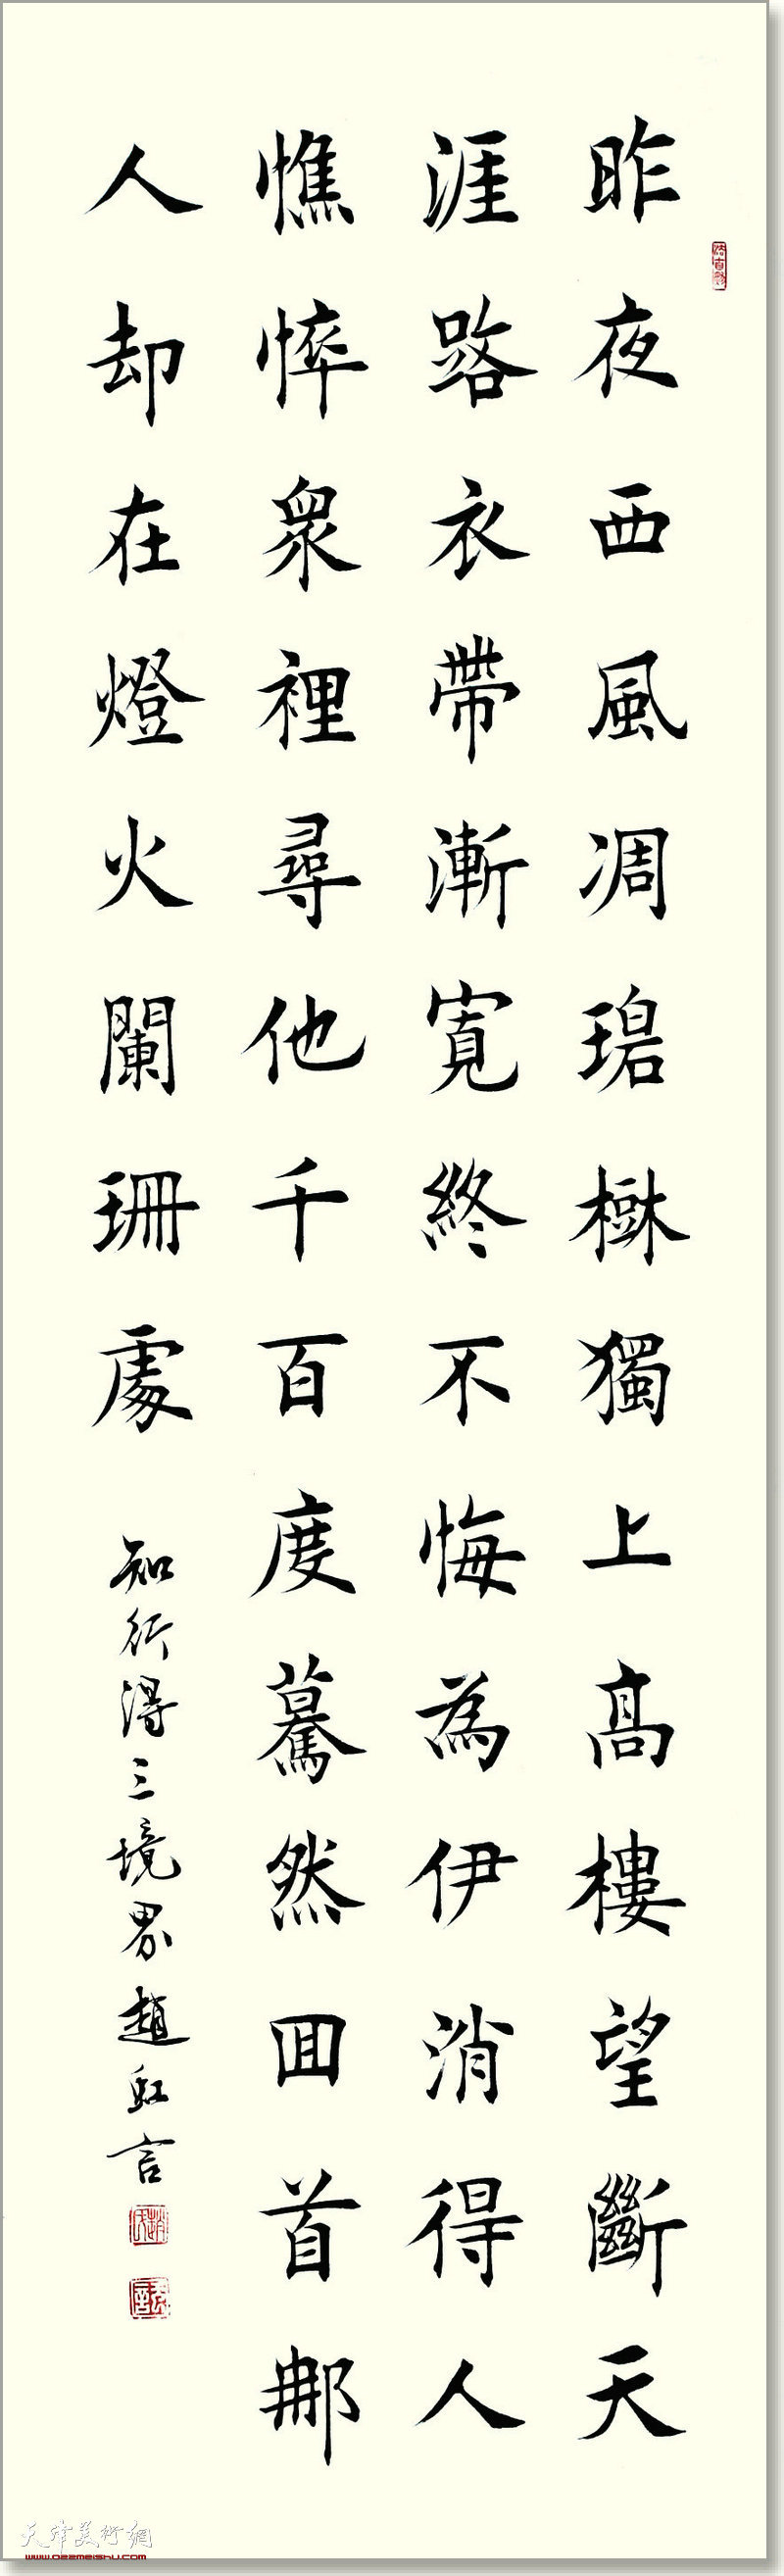 昨夜西風凋碧樹獨上高樓望斷天
涯路衣帶漸寬終不悔為伊消得人
憔悴眾裡尋他千百度驀然回首那
人却在燈火闌珊處
知行得三境界趙虹言
天津美術網
www.022meishu.com